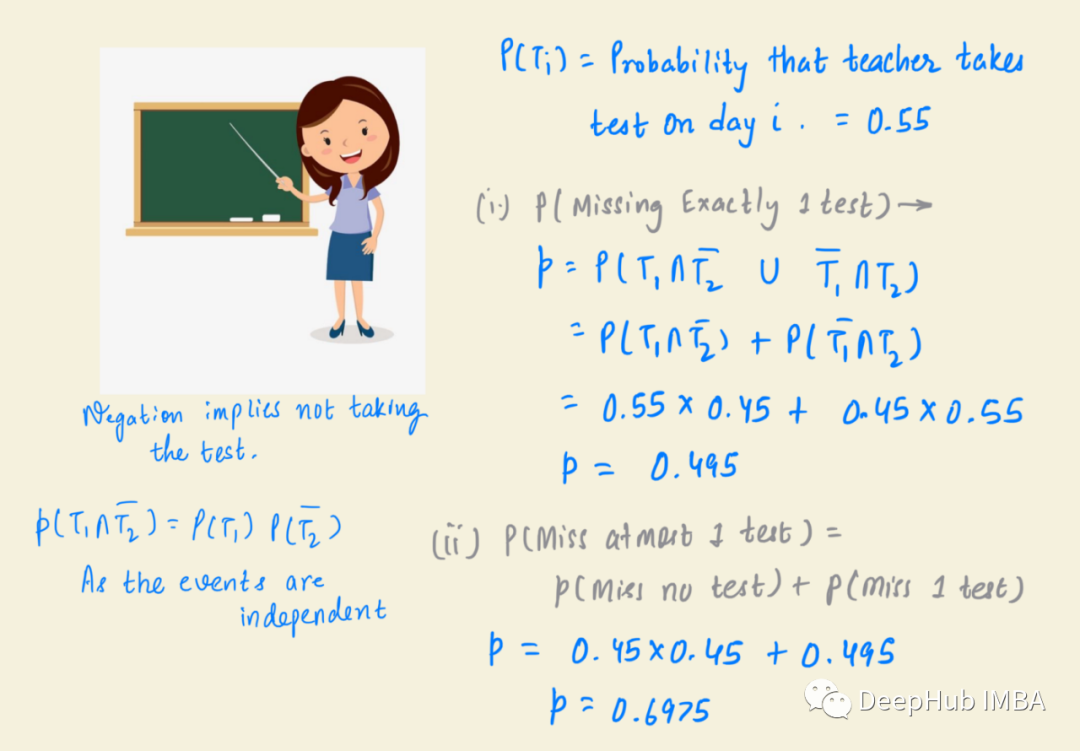 P(Ti) = Probability that teacher takes
test on day i. = 0.55
(i) P(Missing Exactly 1 test) →
p = P(T₁ ∩ T̅₂ ∪ T̅₁ ∩ T₂)
= P(T₁ ∩ T̅₂) + P(T̅₁ ∩ T₂)
= 0.55 × 0.45 + 0.45 × 0.55
p = 0.495
Negation implies not taking
the test.
p(T₁ ∩ T̅₂) = P(T₁) P(T̅₂)
As the events are
independent
(ii) P(Miss atmost 1 test) =
p(Miss no test) + P(Miss 1 test)
p = 0.45 × 0.45 + 0.495
p = 0.6975
DeepHub IMBA